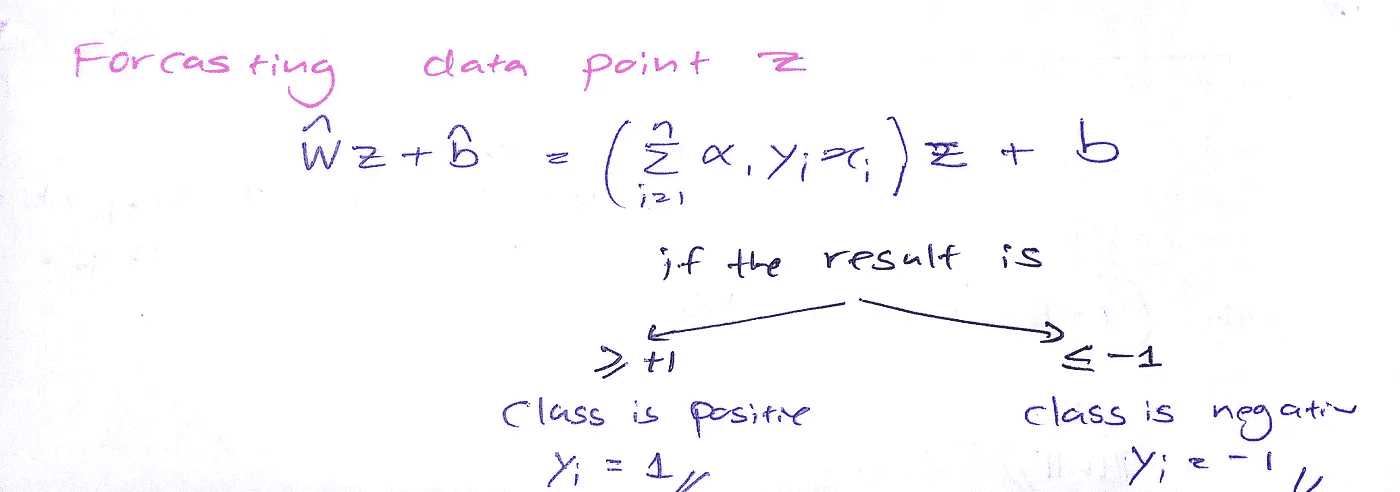 Forcasting data point z
ŵz + b̂ = (∑ᵢ₌₁ⁿ αᵢ yᵢ xᵢ) z + b
if the result is
⩾ +1 ≤ -1
Class is positie class is negativ
yᵢ = 1 yᵢ = -1